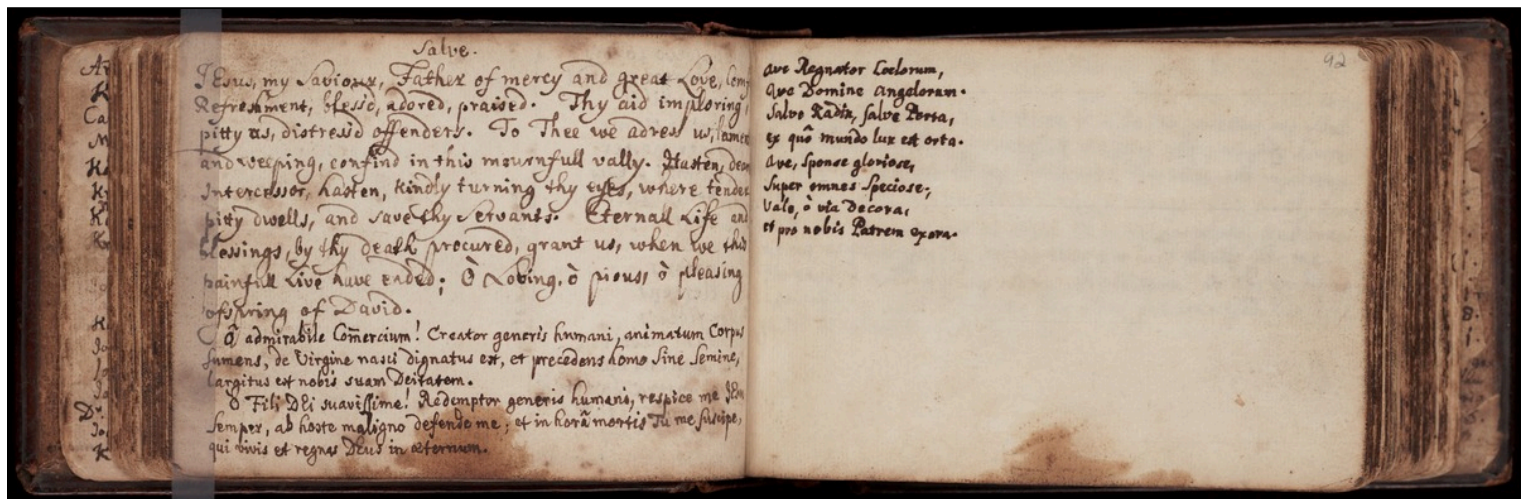 Salve.
JEsus, my Saviour, Father of mercy and great Love,
Refreshment, bless'd, adored, praised. Thy aid imploring,
pitty us, distress'd offenders. To Thee we adress us,
and weeping, confin'd in this mournfull vally. Hasten,
Intercessor, hasten, kindly turning thy eyes, where tender
pitty dwells, and save thy Servants. Eternall Life and
blessings, by thy death procured, grant us, when we this
painfull Live have ended; Ò Loving, ò pious, ò pleasing
ofspring of David.
Ô admirabile Com̄ercium! Creator generis humani, animatum Corpus
Sumens, de Virgine nasci dignatus est, et precedens homo Sine Semine,
largitus est nobis suam Deitatem.
O Fili DEi suavissime! Redemptor generis humani, respice me
Semper, ab hoste maligno defende me; et in horâ mortis Tu me suscipe,
qui vivis et regnas DEus in æternum.
92
Ave Regnator Coelorum,
Ave Domine Angelorum.
Salve Radix, salve Porta,
ex quô mundo lux est orta.
Ave, sponse gloriose,
Super omnes Speciose;
Vale, ò via Decora,
et pro nobis Patrem exora.